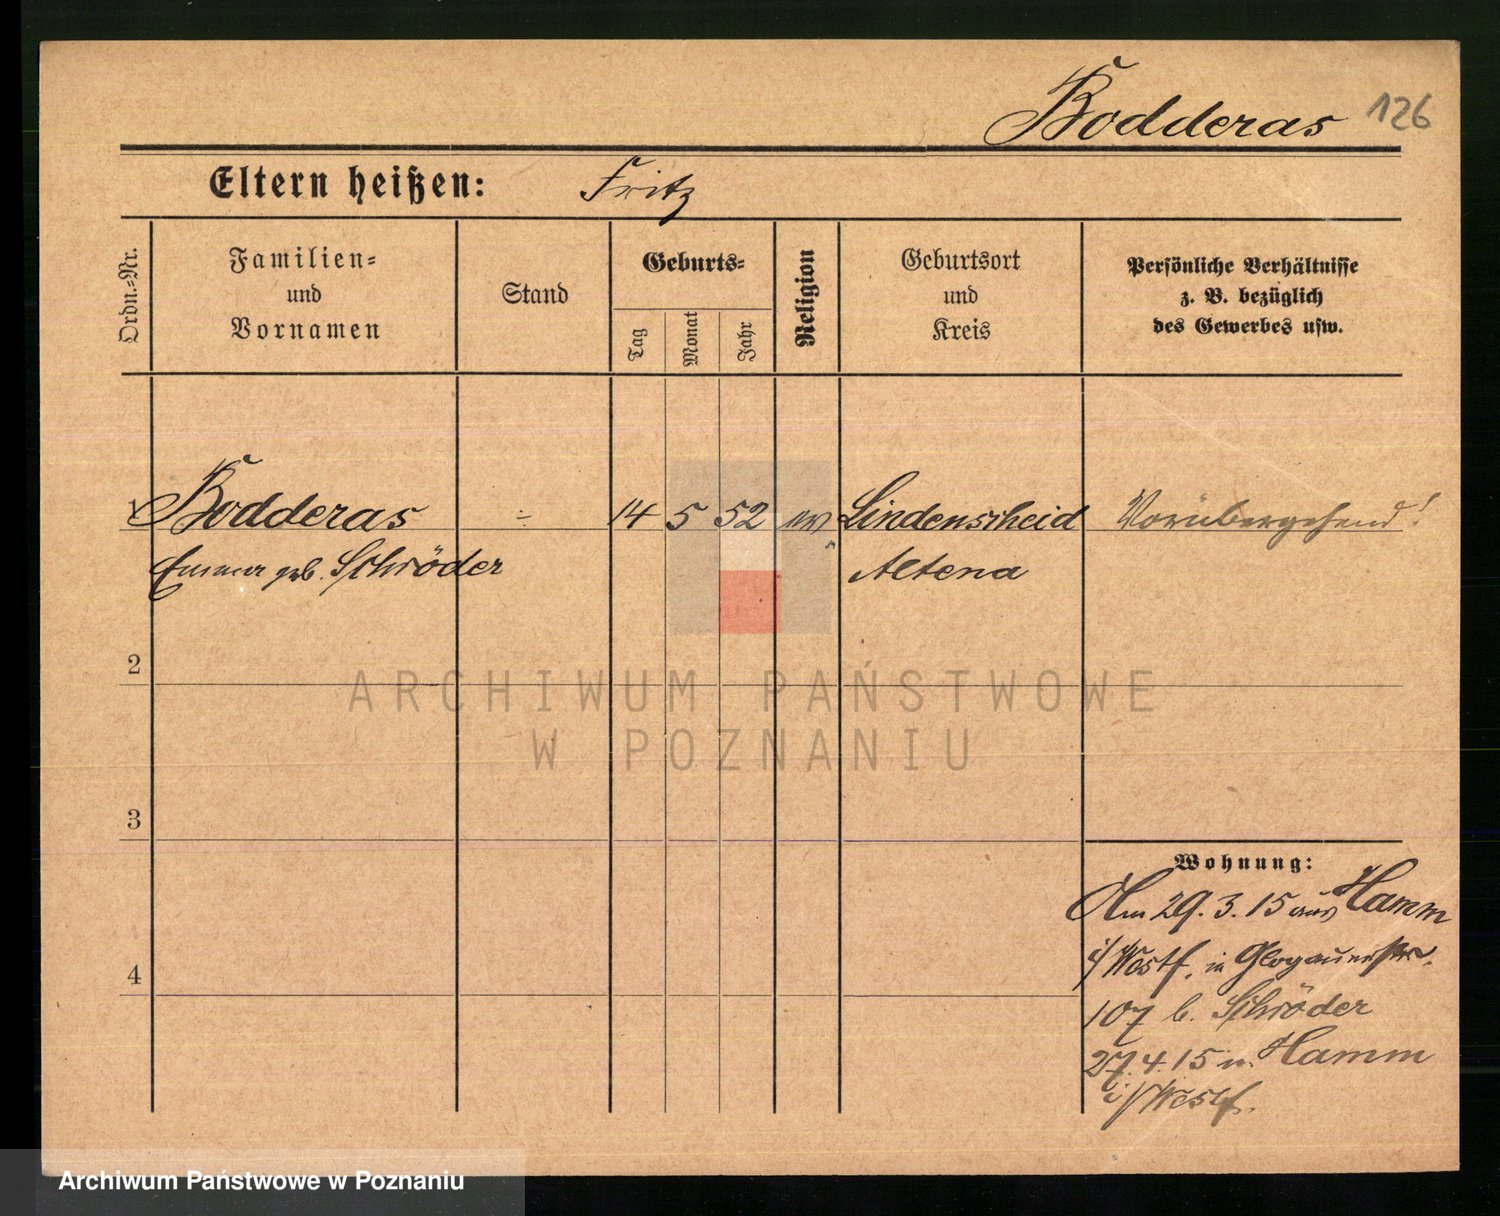 Bodderas 126
Eltern heißen: Fritz
Ordn.-Nr.
Familien-
und
Vornamen
Stand
Geburts-
Tag
Monat
Jahr
Religion
Geburtsort
und
Kreis
Persönliche Verhältnisse
z. B. bezüglich
des Gewerbes usw.
1 Bodderas ÷ 14 5 52 ev Lindenscheid Vorübergehend!
Emma geb. Schröder Altena
2
ARCHIWUM PAŃSTWOWE
W POZNANIU
3
Wohnung:
Am 29. 3. 15 aus Hamm
i/Westf. in Glogauerstr.
4
107 b. Schröder
27. 4. 15 n. Hamm
i/Westf.
Archiwum Państwowe w Poznaniu